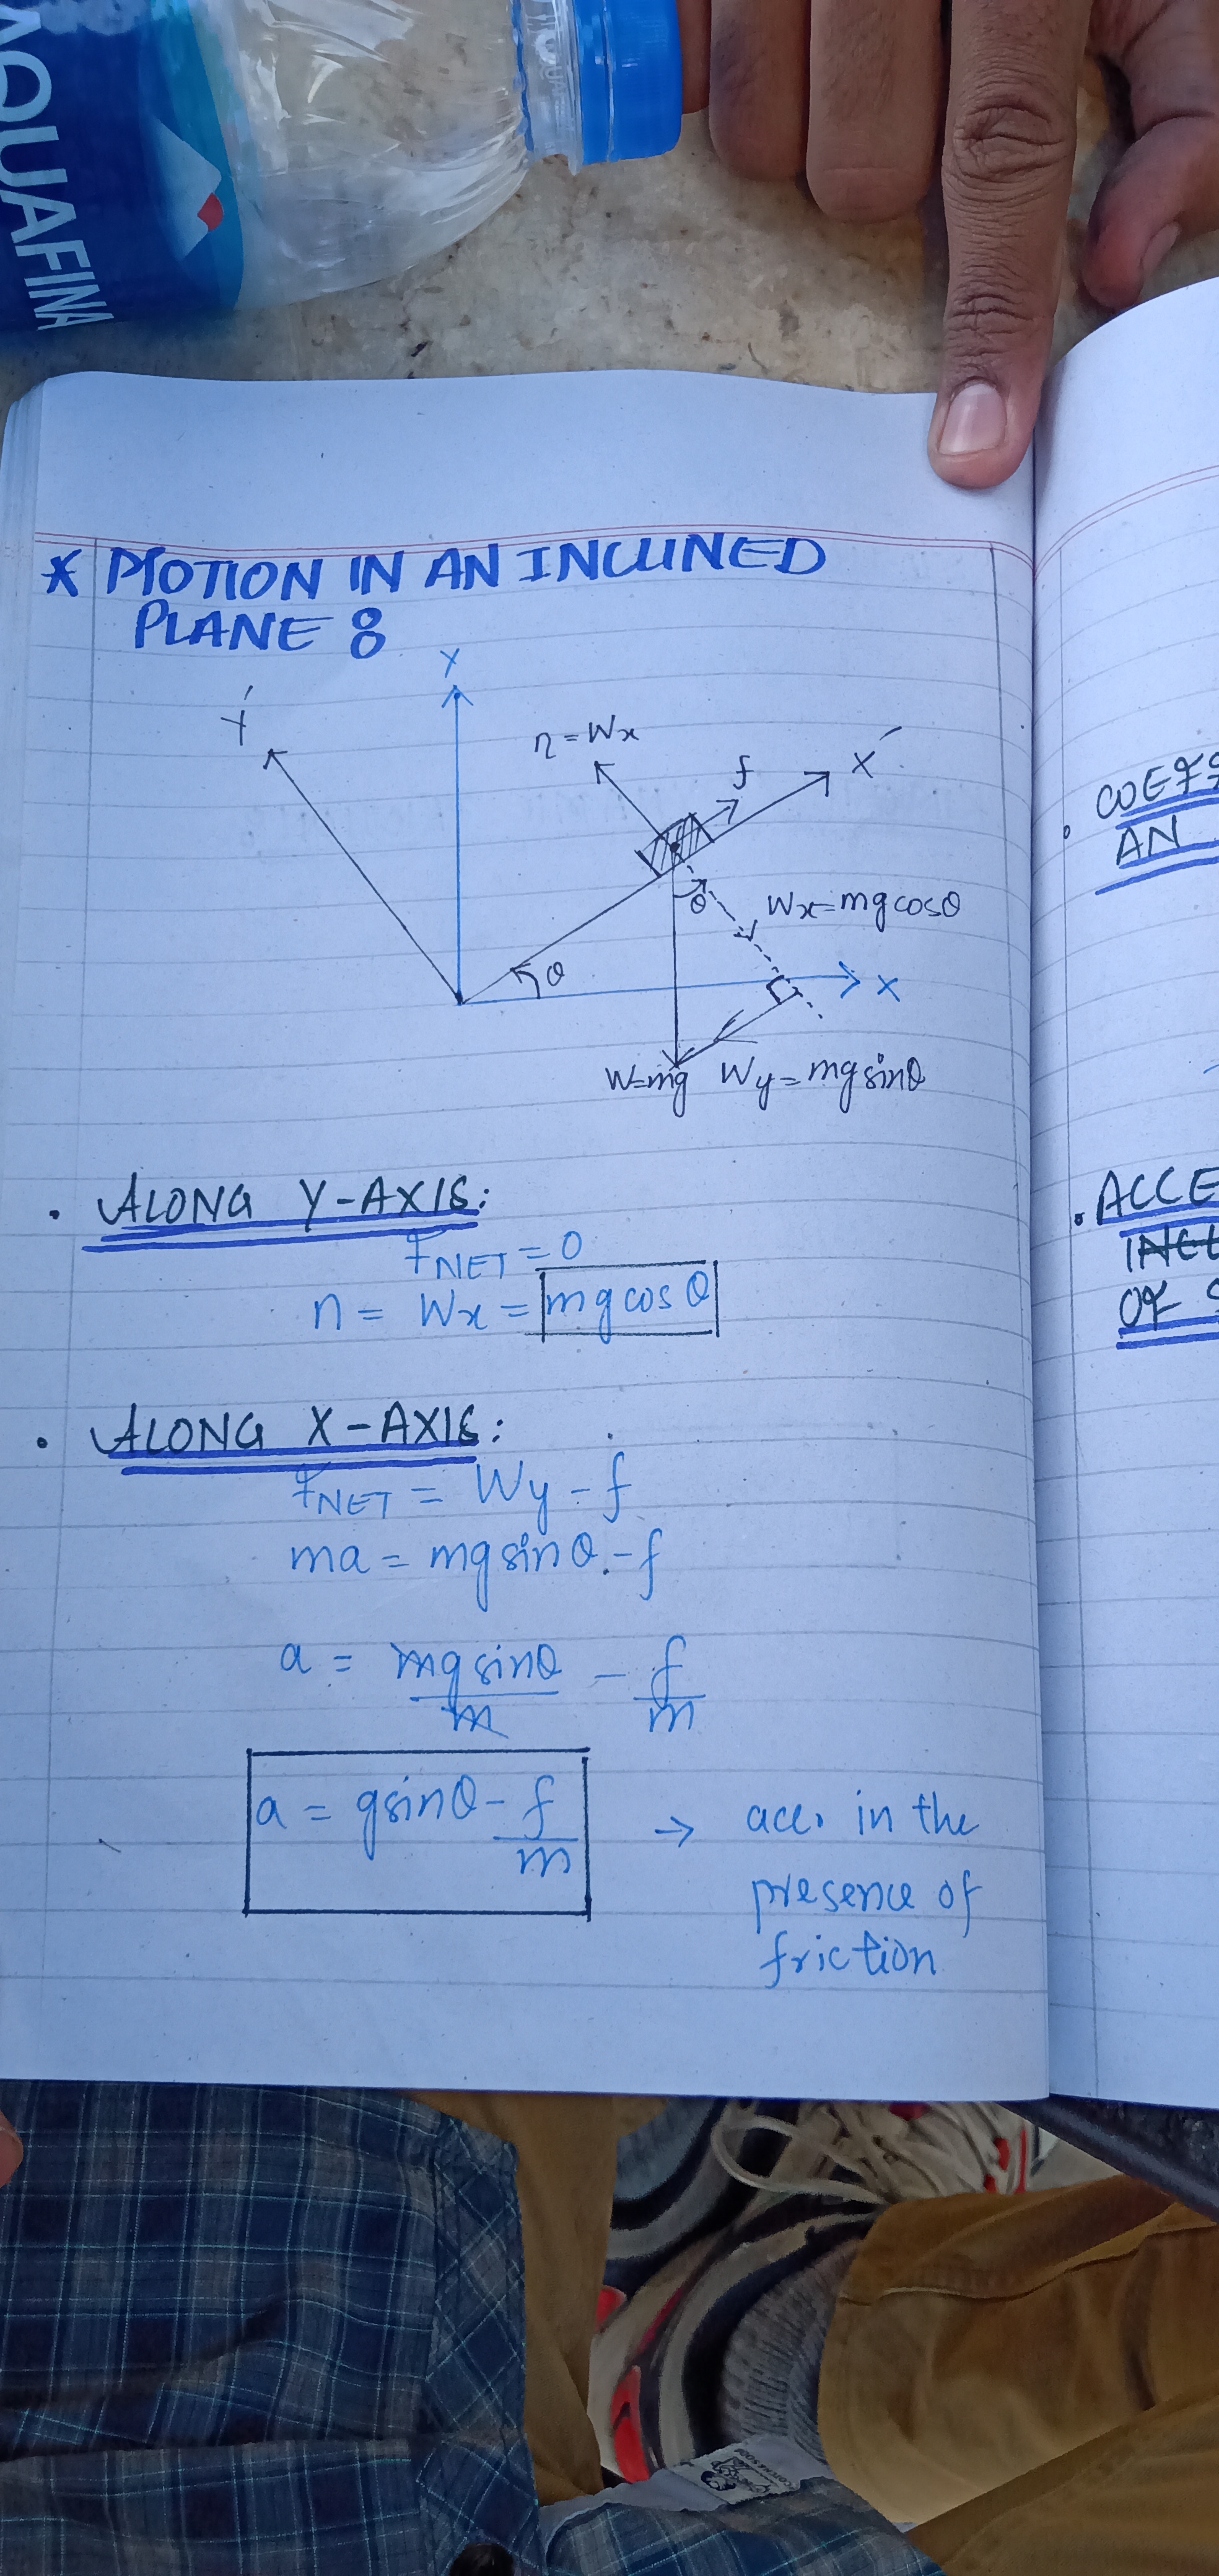 AQUAFINA
* MOTION IN AN INCLINED
PLANE :
Y
Y'
η = Wx
f
X'
θ
Wx = mg cosθ
θ
X
W=mg Wy = mg sinθ
• ALONG Y-AXIS:
FNET = 0
n = Wx = mg cos θ
• ALONG X-AXIS:
FNET = Wy - f
ma = mg sin θ - f
a = mg sinθ / m - f / m
a = g sinθ - f / m → acc. in the
presence of
friction
• COEFF
AN
• ACCE
INCL
OF S